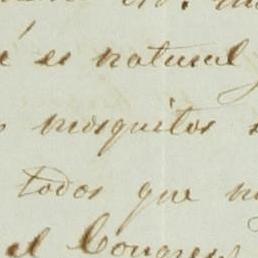 es natural
mosquitos
todos que
el Congreso